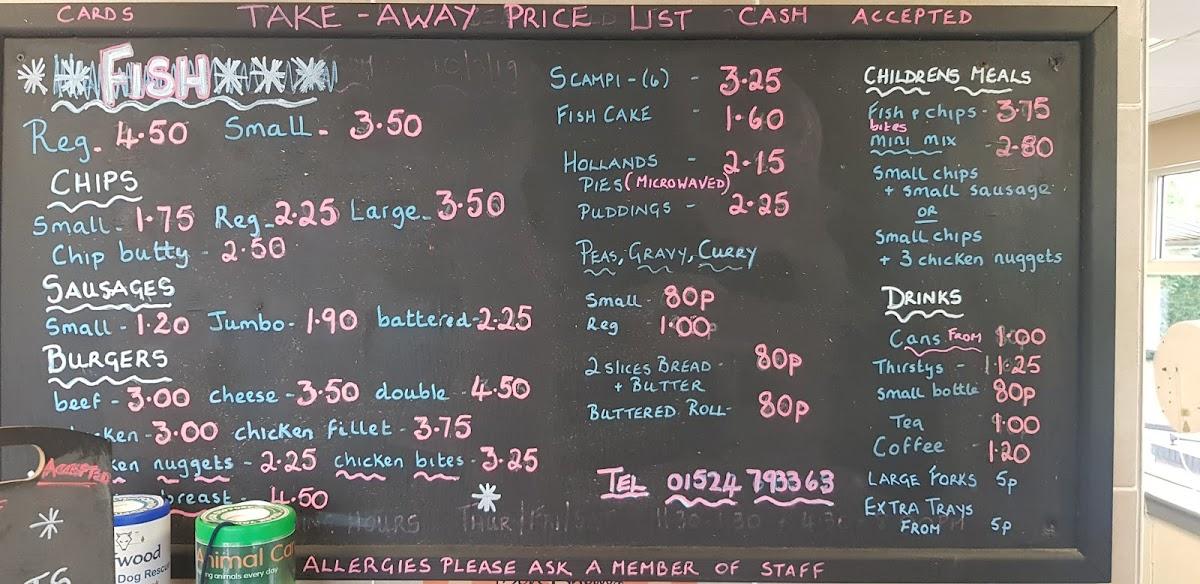 CARDS TAKE-AWAY PRICE LIST CASH ACCEPTED
FISH
Reg. 4.50 Small - 3.50
CHIPS
Small - 1.75 Reg - 2.25 Large - 3.50
Chip butty - 2.50
SAUSAGES
Small - 1.20 Jumbo - 1.90 battered - 2.25
BURGERS
beef - 3.00 cheese - 3.50 double - 4.50
ken - 3.00 chicken fillet - 3.75
ken nuggets - 2.25 chicken bites - 3.25
breast - 4.50
SCAMPI - (6) - 3.25
FISH CAKE - 1.60
HOLLANDS - 2.15
PIES (MICROWAVED)
PUDDINGS - 2.25
PEAS, GRAVY, CURRY
Small - 80p
Reg 1.00
2 SLICES BREAD - 80p
+ BUTTER
BUTTERED ROLL - 80p
TEL 01524 793363
CHILDRENS MEALS
Fish & chips - 3.75
bites
mini mix - 2.80
Small chips
+ small sausage
OR
Small chips
+ 3 chicken nuggets
DRINKS
Cans FROM 1.00
Thirstys - 1.25
Small bottle 80p
Tea 1.00
Coffee - 1.20
LARGE FORKS 5p
EXTRA TRAYS
FROM 5p
HOURS THUR/FRI/
ALLERGIES PLEASE ASK A MEMBER OF STAFF
ACCEPTED
wood
Dog Rescu
Animal Ca
ng animals every day